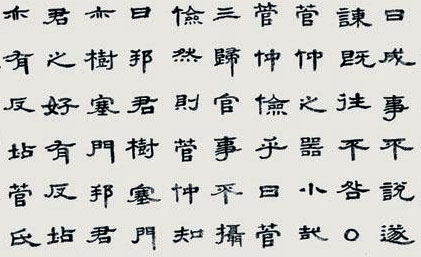 曰成事不說遂
諫既往不咎〇
管仲之器小哉
管仲儉乎曰管
三歸官事不攝
儉然則管仲知
曰邦君樹塞門
亦樹塞門邦君
君之好有反坫
亦有反坫管氏